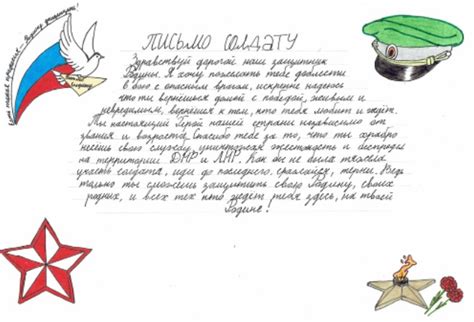 ПИСЬМО СОЛДАТУ
Здравствуй дорогой наш защитник
Родины. Я хочу пожелать тебе доблести
в бою с опасным врагом, искренне надеюсь
что ты вернёшься домой с победой, живым и
невредимым, вернёшся к тем, кто тебя любит и ждёт.
Ты настоящий Герой нашей страны независимо от
звания и возраста. Спасибо тебе за то, что ты храбро
несёшь свою службу, уничтожая жестокость и беспредел
на территории ДНР и ЛНР. Как бы не была тяжела
участь солдата, иди до последнего, сражайся, терпи. Ведь
только ты сможешь защитить свою Родину, своих
родных, и всех тех кто ждёт тебя здесь, на твоей
Родине!